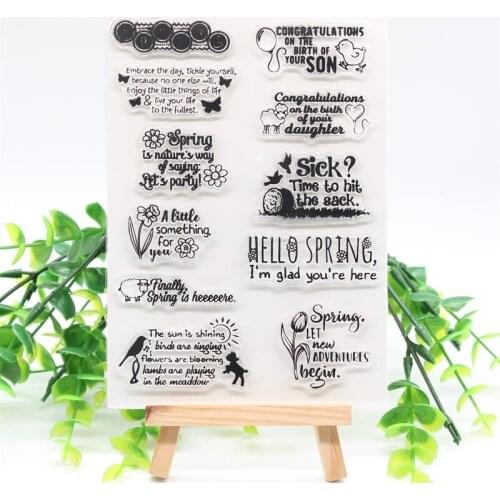 Embrace the day, tickle yourself,
because no one else will.
Enjoy the little things of life
& live your life
to the fullest.
Spring
is nature's way
of saying:
Let's party!
A little
something
for
you
Finally,
Spring is heeeeere.
The sun is shining
birds are singing
flowers are blooming
lambs are playing
in the meaddow
CONGRATULATIONS
ON THE
BIRTH OF
YOUR SON
Congratulations
on the birth
of your
daughter
Sick?
Time to hit
the sack.
HELLO SPRING,
I'm glad you're here
Spring.
LET
new
ADVENTURES
begin.